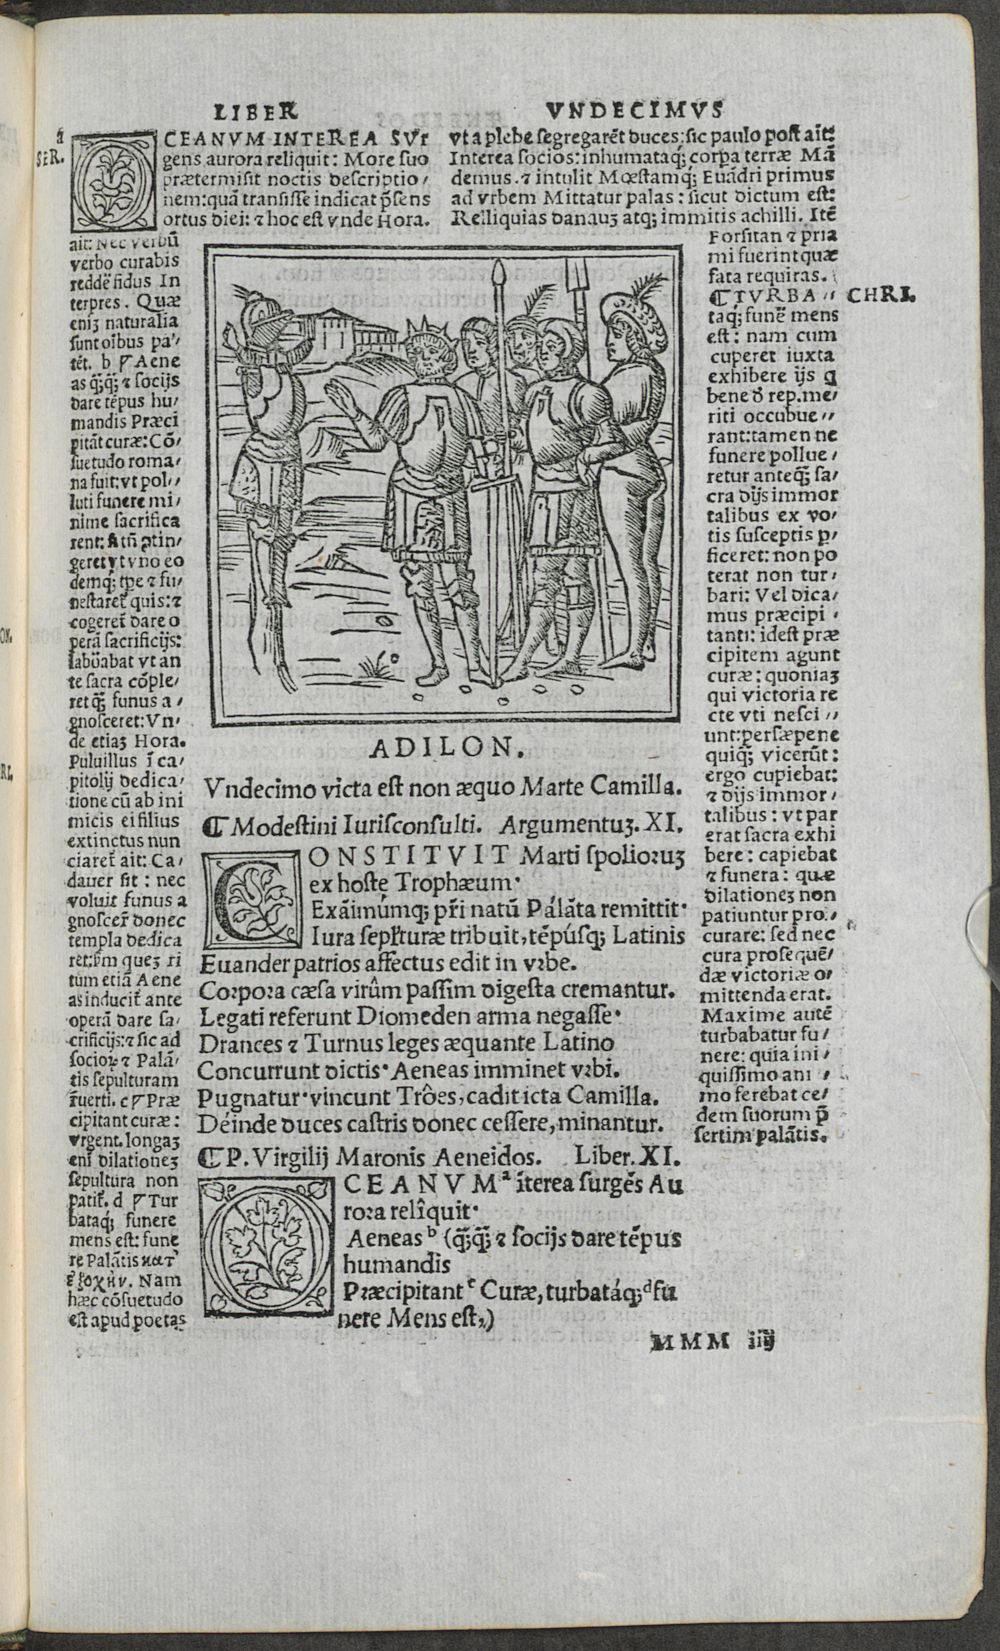 LIBER VNDECIMVS
a
SER.
OCEANVM INTEREA SVr
gens aurora reliquit: More suo
prætermisit noctis descriptio,
nem: quã transisse indicat p̃sens
ortus diei: ⁊ hoc est vnde Hora.
ait: Nec verbũ
verbo curabis
reddẽ fidus In
terpres. Quæ
eniꝫ naturalia
sunt oĩbus pa,,
tẽt. b ¶ Aene
as q̃q̃; ⁊ socijs
dare tẽpus hu,
mandis Præci
pitãt curæ: Cõ,
suetudo roma,
na fuit: vt pol,,
luti funere mi,
nime sacrifica
rent: Si tñ ↄtin,
geret vt vno eo
demq; tp̃e ⁊ fu,
nestaret̃ quis: ⁊
cogeret̃ dare o
perã sacrificijs:
labũabat vt an
te sacra cõple,
ret q̃ funus a,
gnosceret: Vn,
de etiaꝫ Hora.
Puluillus ĩ ca,
pitolij dedica,
tione cũ ab ini
micis ei filius
extinctus nun
ciaret̃ ait: Ca,
dauer sit: nec
voluit funus a
gnoscer̃ donec
templa dedica
ret: s̃m queꝫ ri
tum etiã Aene
as inducit̃ ante
operã dare sa,
crificijs: ⁊ sic ad
socioꝝ ⁊ Palã,
tis sepulturam
r̃uerti. c ¶ Præ
cipitant curæ:
vrgent. longaꝫ
eni dilationeꝫ
sepultura non
patit̃. d ¶ Tur
bataq; funere
mens est: fune
re Palãtis κατ᾽
ἐξοχὴν. Nam
hæc cõsuetudo
est apud poetas
vt a plebe segregarẽt duces: sic paulo post ait:
Interea socios: inhumataq; corp̃a terræ Mã
demus. ⁊ intulit Mœstamq; Euãdri primus
ad vrbem Mittatur palas: sicut dictum est:
Relliquias danauꝫ atq; immitis achilli. Itẽ
Forsitan ⁊ pria
mi fuerint quæ
fata requiras.
¶ TVRBA,, CHRI.
taq; funẽ mens
est: nam cum
cuperet iuxta
exhibere ijs q
bene ð rep. me,
riti occubue,,
rant: tamen ne
funere pollue,
retur anteq̃ sa,
cra dijs immor
talibus ex vo,
tis susceptis p,
ficeret: non po
terat non tur,
bari: Vel dica,
mus præcipi,
tanti: idest præ
cipitem agunt
curæ: quoniaꝫ
qui victoria re
cte vti nesci,,
unt: persæpene
quiq; vicerũt:
ergo cupiebat:
⁊ dijs immor,
talibus: vt par
erat sacra exhi
bere: capiebat
⁊ funera: quæ
dilationeꝫ non
patiuntur pro,
curare: sed nec
cura prosequẽ,
dæ victoriæ o,
mittenda erat.
Maxime autẽ
turbabatur fu,
nere: quia ini,
quissimo ani,
mo ferebat cę,
dem suorum p̃
sertim palãtis.
ADILON.
Vndecimo victa est non æquo Marte Camilla.
¶ Modestini Iurisconsulti. Argumentuꝫ. XI.
CONSTITVIT Marti spolioruꝫ
ex hoste Trophæum.
Exãimúmq; pr̃i natũ Pálãta remittit.
Iura sepl̃turæ tribuit, tẽpúsq; Latinis
Euander patrios affectus edit in vrbe.
Corpora cæsa virûm passim digesta cremantur.
Legati referunt Diomeden arma negasse.
Drances ⁊ Turnus leges æquante Latino
Concurrunt dictis. Aeneas imminet vrbi.
Pugnatur. vincunt Trôes, cadit icta Camilla.
Déinde duces castris donec cessere, minantur.
¶ P. Virgilij Maronis Aeneidos. Liber. XI.
OCEANVM a ĩterea surgẽs Au
rora relîquit.
Aeneas b (q̃q̃; ⁊ socijs dare tẽpus
humandis
Præcipitant c Curæ, turbatáq; d fu
nere Mens est,)
MMM iiij